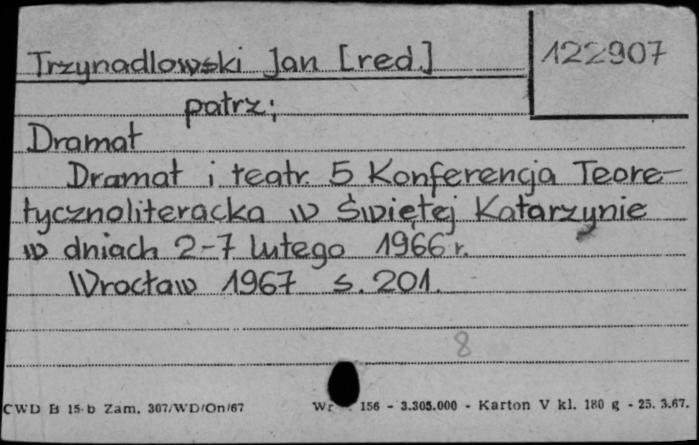 Trzynadlowski Jan [red.]
122907
patrz;
Dramat
Dramat i teatr. 5 Konferencja Teore-
tycznoliteracka w Świętej Katarzynie
w dniach 2-7 lutego 1966 r.
Wrocław 1967 s. 201.
8
CWD B 15-b Zam. 307/WD/On/67 Wr 156 - 3.305.000 - Karton V kl. 180 g - 25.3.67.